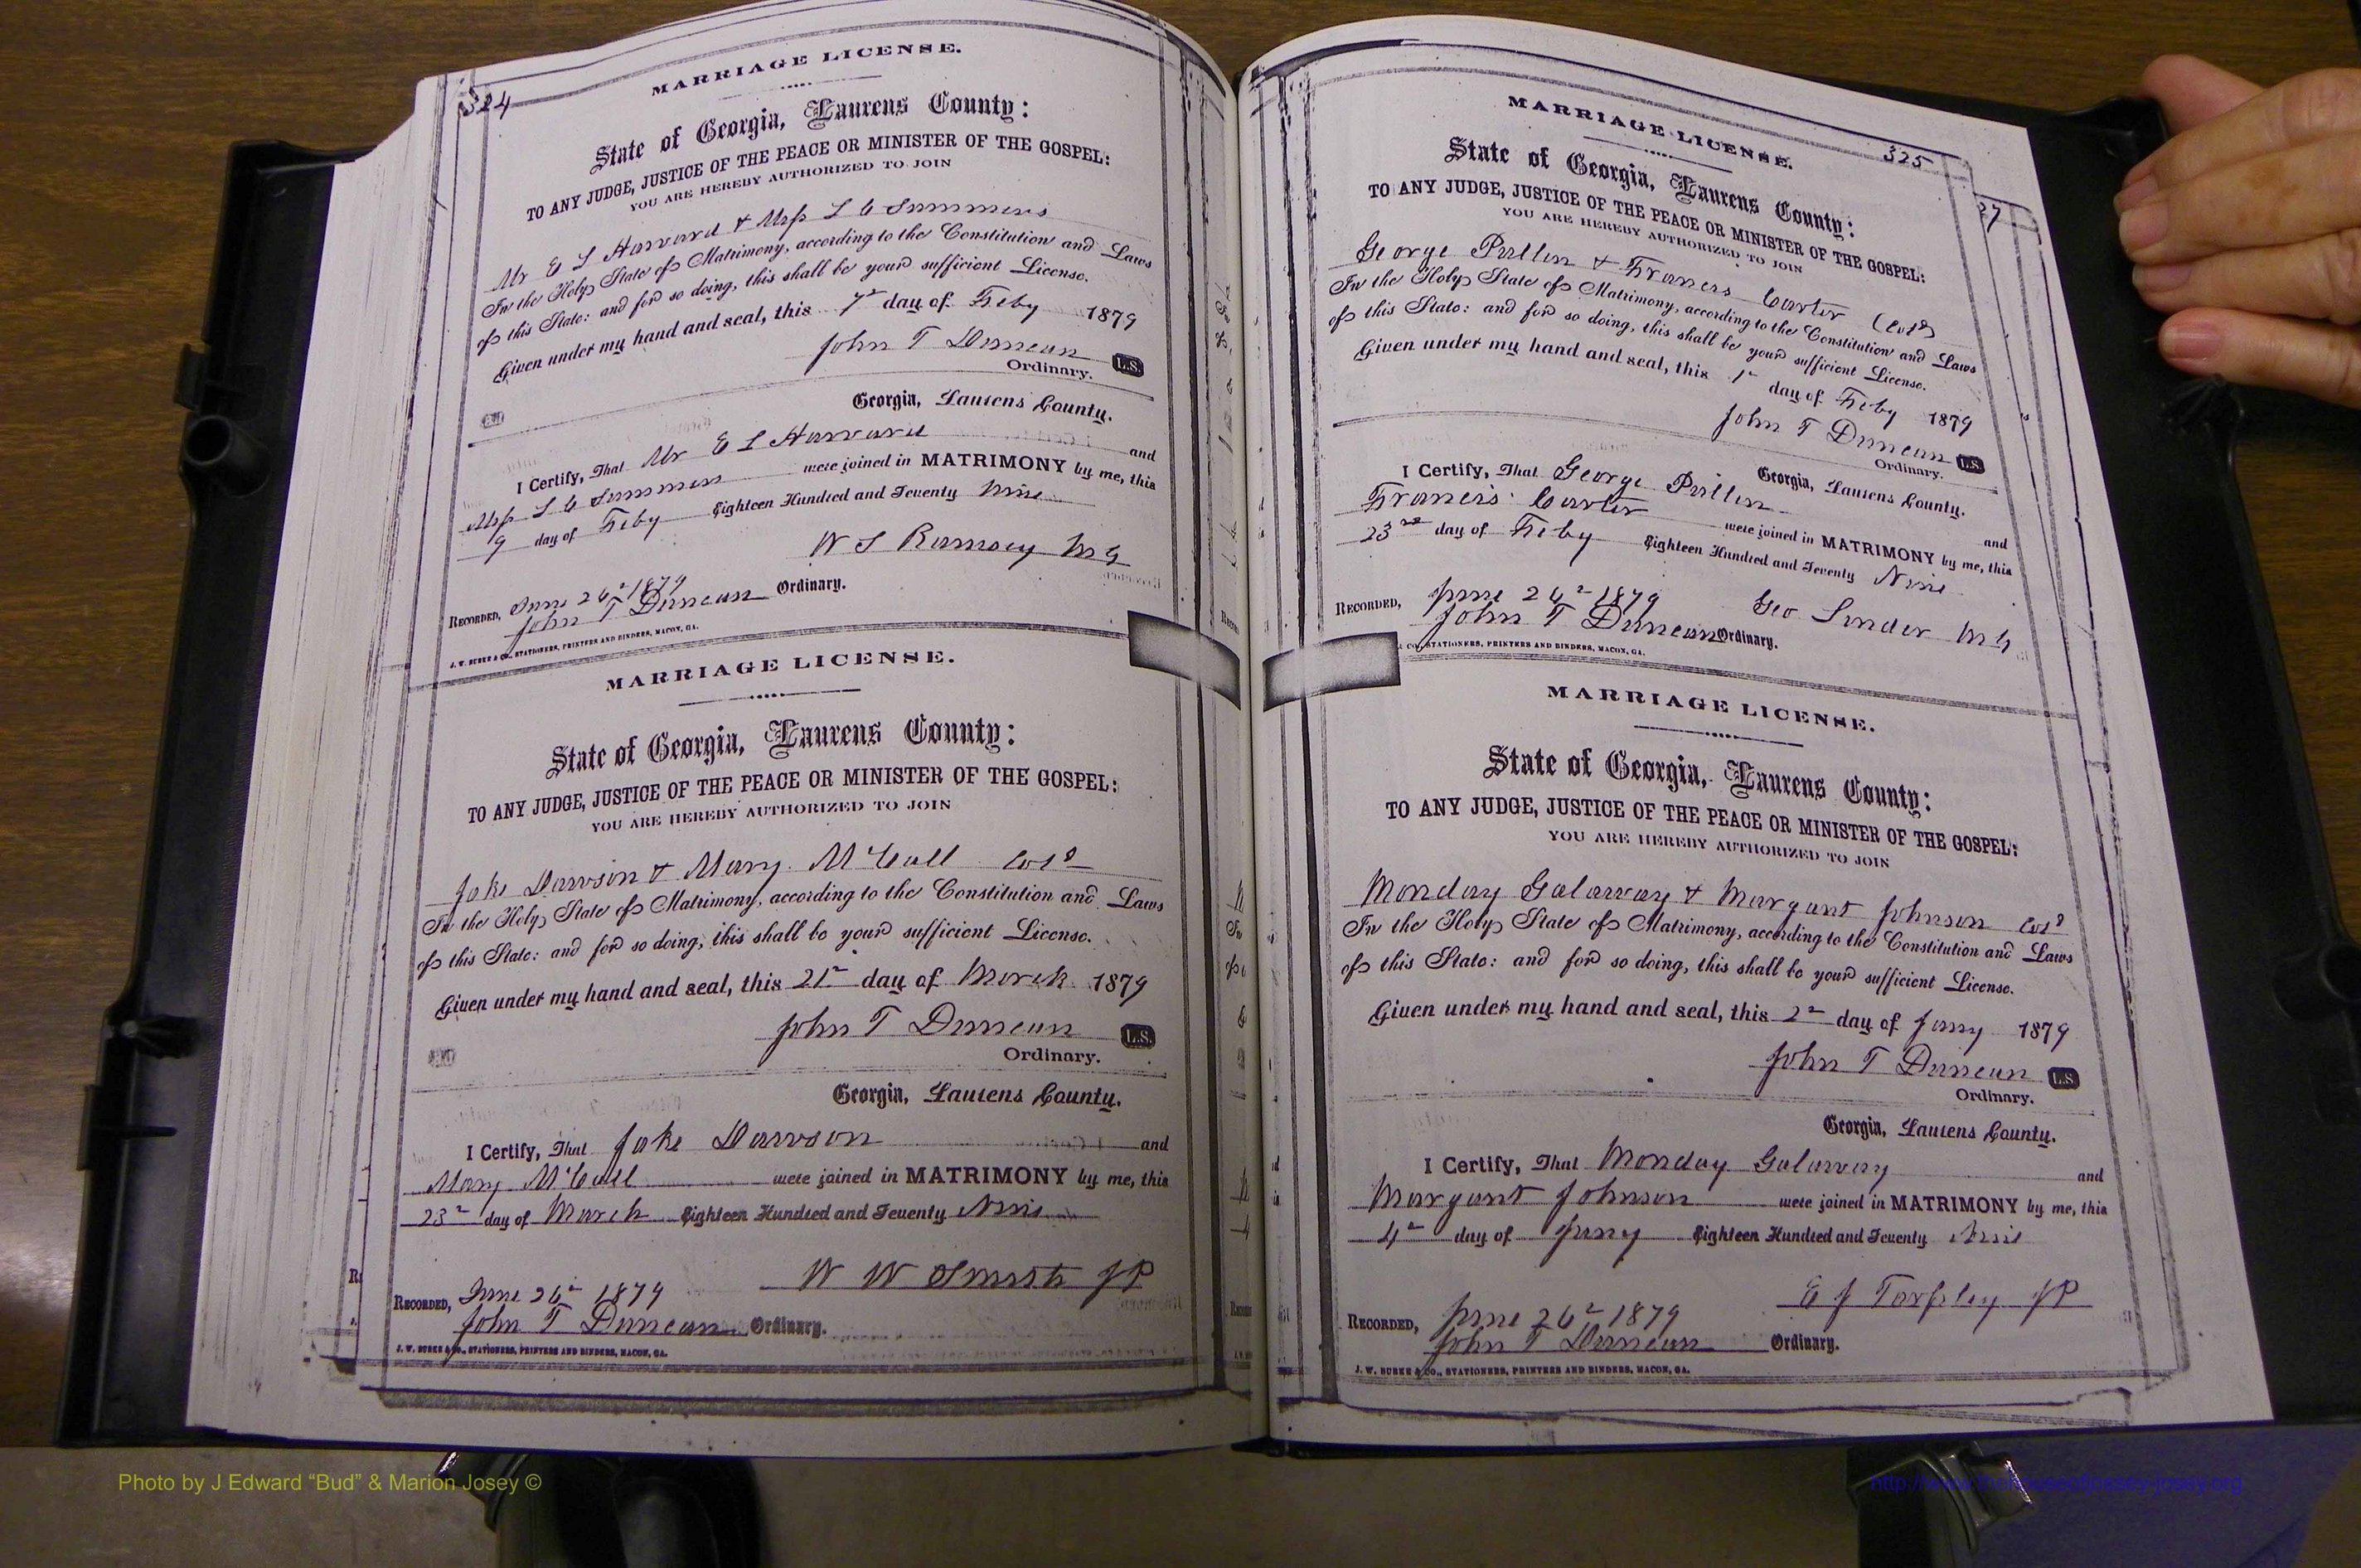 324
MARRIAGE LICENSE.
State of Georgia, Laurens County:
TO ANY JUDGE, JUSTICE OF THE PEACE OR MINISTER OF THE GOSPEL:
YOU ARE HEREBY AUTHORIZED TO JOIN
Mr E L Harvard & Mrs L C Summers
In the Holy State of Matrimony, according to the Constitution and Laws
of this State: and for so doing, this shall be your sufficient License.
Given under my hand and seal, this 7th day of Feby 1879
John T Duncan L.S.
Ordinary.
Georgia, Laurens County.
I Certify, That Mr E L Harvard and
Mrs L C Summers were joined in MATRIMONY by me, this
9 day of Feby Eighteen Hundred and Seventy Nine
W S Ramsey M G
RECORDED, June 26th 1879
John T Duncan Ordinary.
J. W. BURKE & CO., STATIONERS, PRINTERS AND BINDERS, MACON, GA.
MARRIAGE LICENSE.
State of Georgia, Laurens County:
TO ANY JUDGE, JUSTICE OF THE PEACE OR MINISTER OF THE GOSPEL:
YOU ARE HEREBY AUTHORIZED TO JOIN
Jake Dawson & Mary McCall Cold
In the Holy State of Matrimony, according to the Constitution and Laws
of this State: and for so doing, this shall be your sufficient License.
Given under my hand and seal, this 21st day of March 1879
John T Duncan L.S.
Ordinary.
Georgia, Laurens County.
I Certify, That Jake Dawson and
Mary McCall were joined in MATRIMONY by me, this
23rd day of March Eighteen Hundred and Seventy Nine
W W Smith JP
RECORDED, June 26th 1879
John T Duncan Ordinary.
J. W. BURKE & CO., STATIONERS, PRINTERS AND BINDERS, MACON, GA.
325
27
MARRIAGE LICENSE.
State of Georgia, Laurens County:
TO ANY JUDGE, JUSTICE OF THE PEACE OR MINISTER OF THE GOSPEL:
YOU ARE HEREBY AUTHORIZED TO JOIN
George Pullen & Francis Carter (Cold)
In the Holy State of Matrimony, according to the Constitution and Laws
of this State: and for so doing, this shall be your sufficient License.
Given under my hand and seal, this 1st day of Feby 1879
John T Duncan L.S.
Ordinary.
Georgia, Laurens County.
I Certify, That George Pullen and
Francis Carter were joined in MATRIMONY by me, this
23rd day of Feby Eighteen Hundred and Seventy Nine
Geo Linder M G
RECORDED, June 26th 1879
John T Duncan Ordinary.
CO., STATIONERS, PRINTERS AND BINDERS, MACON, GA.
MARRIAGE LICENSE.
State of Georgia, Laurens County:
TO ANY JUDGE, JUSTICE OF THE PEACE OR MINISTER OF THE GOSPEL:
YOU ARE HEREBY AUTHORIZED TO JOIN
Monday Galaway & Margant Johnson Cold
In the Holy State of Matrimony, according to the Constitution and Laws
of this State: and for so doing, this shall be your sufficient License.
Given under my hand and seal, this 2nd day of Jany 1879
John T Duncan L.S.
Ordinary.
Georgia, Laurens County.
I Certify, That Monday Galaway and
Margant Johnson were joined in MATRIMONY by me, this
4th day of Jany Eighteen Hundred and Seventy Nine
E J Tarpley JP
RECORDED, June 26th 1879
John T Duncan Ordinary.
J. W. BURKE & CO., STATIONERS, PRINTERS AND BINDERS, MACON, GA.
Photo by J Edward “Bud” & Marion Josey ©